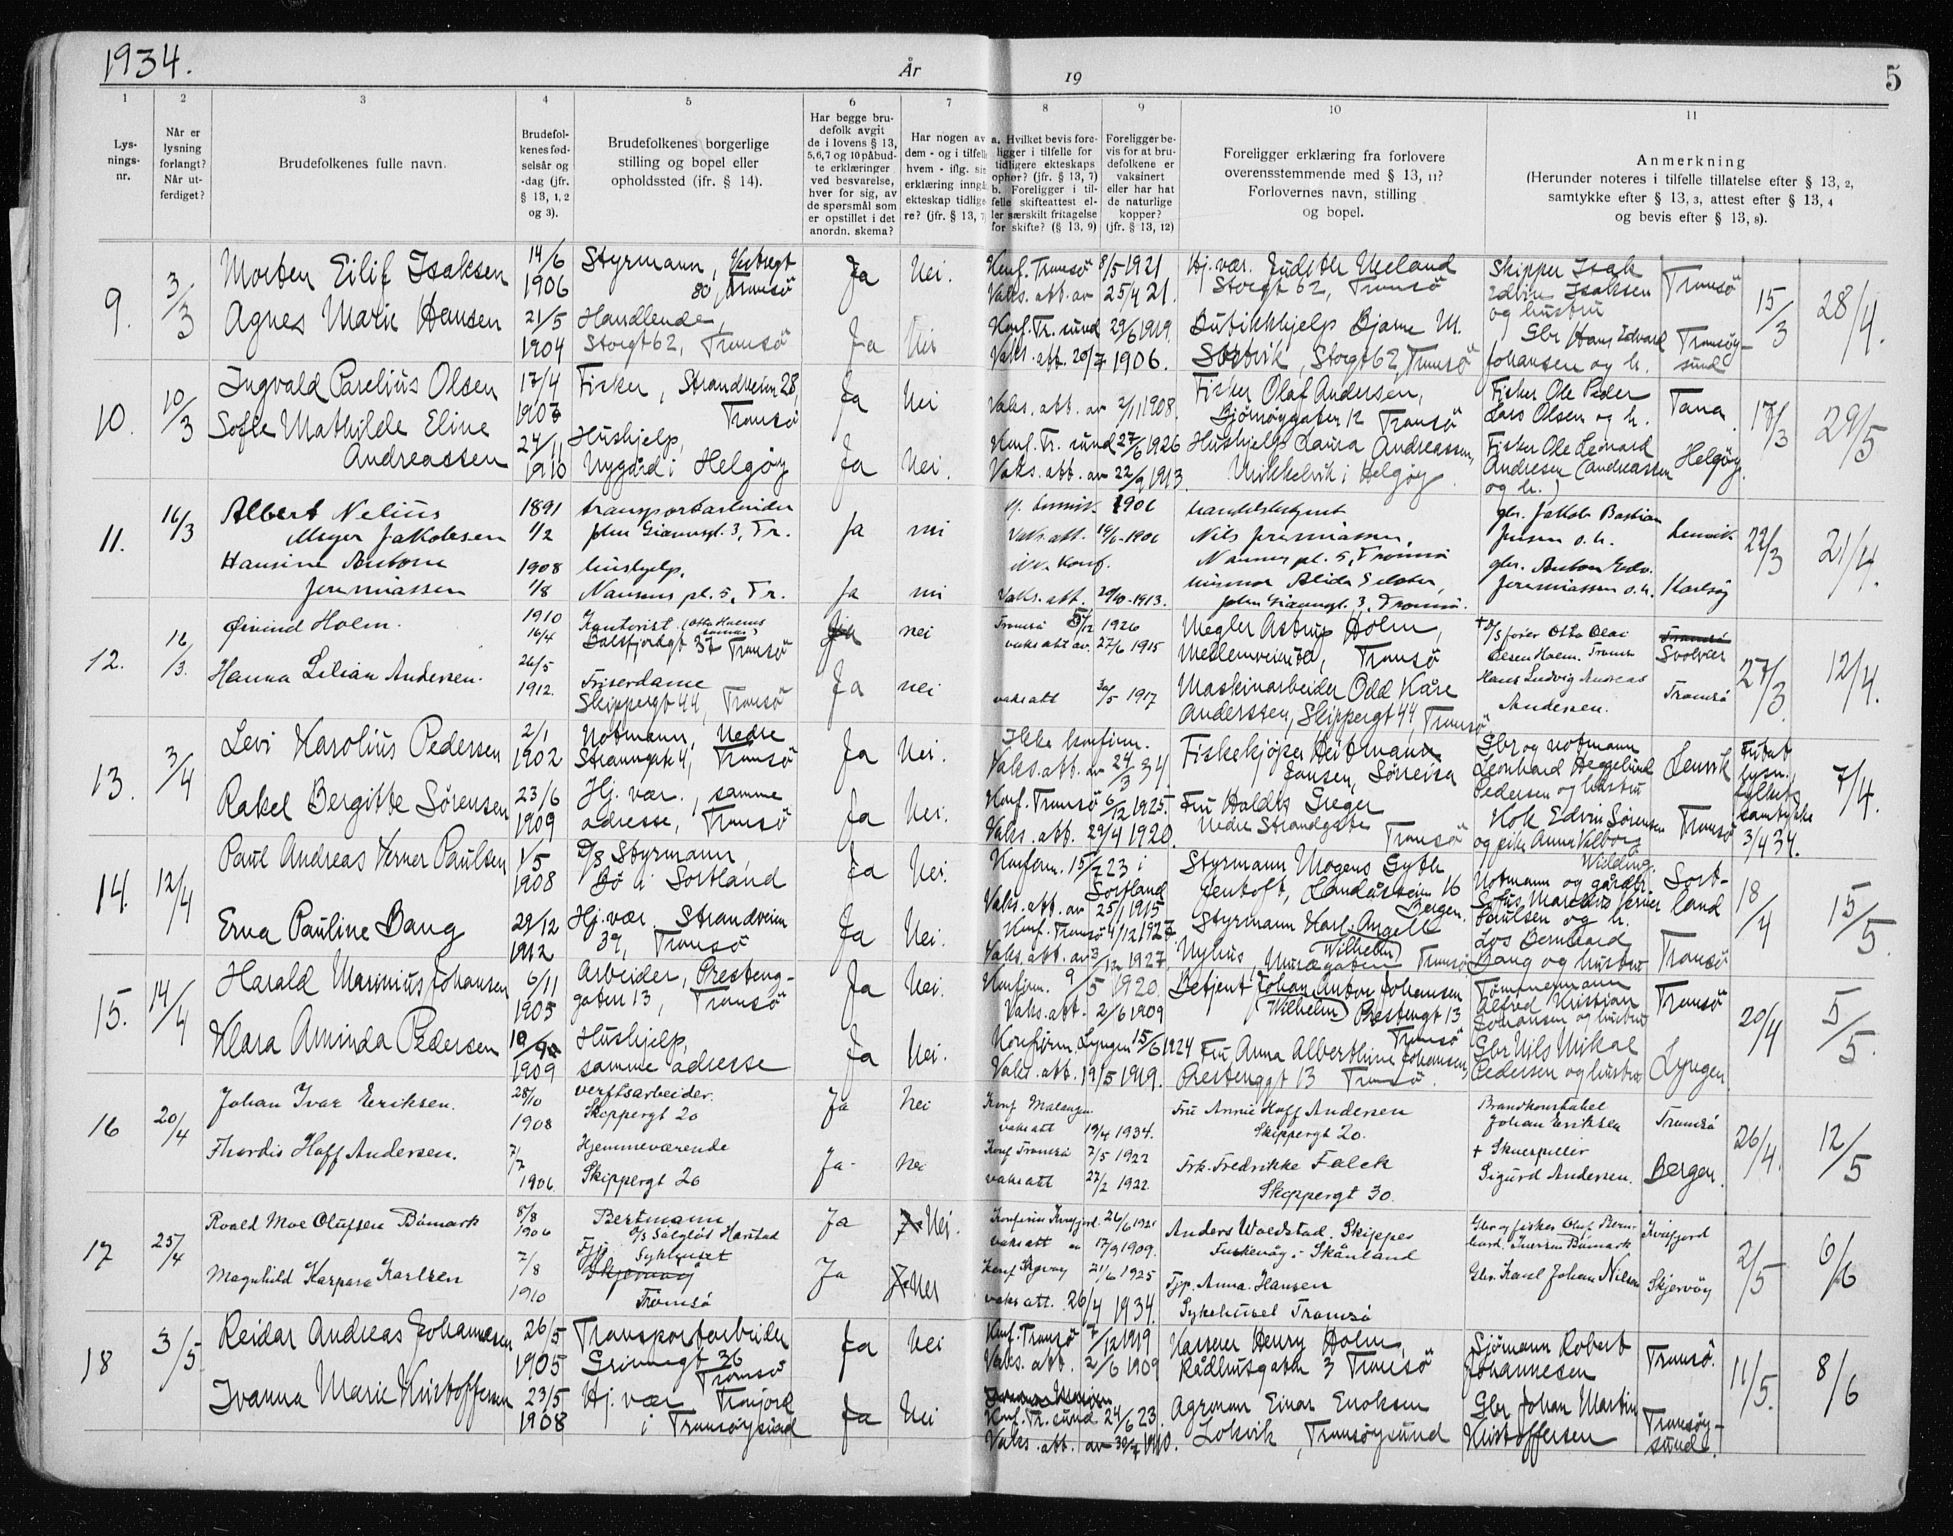 1934.
År
19
5
1
2
3
4
5
6
7
8
9
10
11
Lys-
nings-
nr.
Når er
lysning
forlangt?
Når ut-
ferdiget?
Brudefolkenes fulle navn.
Brudefol-
kenes fød-
selsår og
-dag (jfr.
§ 13, 1, 2
og 3).
Brudefolkenes borgerlige
stilling og bopel eller
opholdssted (jfr. § 14).
Har begge bru-
defolk avgit
de i lovens § 13,
5,6,7 og 10 påbud-
te erklæringer
ved besvarelse,
hver for sig, av
de spørsmål som
er opstillet i det
anordn. skema?
Har nogen av
dem - og i tilfelle
hvem - iflg. sin
erklæring inngå
ekteskap tidlige-
re? (jfr. § 13, 7)
a. Hvilket bevis fore-
ligger i tilfelle for
tidligere ekteskaps
ophør? (jfr. § 13, 7)
b. Foreligger i til-
felle skifteattest el-
ler særskilt fritagelse
for skifte? (§ 13, 9)
Foreligger be-
vis for at bru-
defolkene er
vaksinert
eller har hat
de naturlige
kopper?
(jfr. § 13, 12)
Foreligger erklæring fra forlovere
overensstemmende med § 13, 11?
Forlovernes navn, stilling
og bopel.
Anmerkning
(Herunder noteres i tilfelle tillatelse efter § 13, 2,
samtykke efter § 13, 3, attest efter § 13, 4
og bevis efter § 13, 8).
9. 3/3 Morten Eilif Isaksen 14/6 1906 Styrmann, Vestregt 80, Tromsö Ja Nei. Konf. Tromsö 8/5 1921 Vaks. att. av 25/4 21. Hj. vær. Judith Meland Storgt 62, Tromsö Skipper Isak Edvin Isaksen og hustru Tromsö 15/3 28/4.
Agnes Marie Hansen 21/5 1904 Handlende, Storgt 62, Tromsö Ja Nei Konf. Tr. sund 29/6 1919. Vaks. att. 20/7 1906. Butikkhjelp Bjarne M. Storgt 62, Tromsö Gbr Hans Edvard Johansen og h. Tromsöy-sund
10. 10/3 Ingvald Parelius Olsen 17/4 1907 Fisker, Strandveien 28, Tromsö Ja Nei Vaks. att. av 2/11 1908. Fisker Olaf Andersen, Bjørnøygaten 12 Tromsö Fisker Ole Peder Lars Olsen og h. Tana 17/3 29/5
Sofie Mathilde Eline Andreassen 24/11 1910 Hushjelp, Nygård i Helgøy Ja Nei. Konf. Tr. sund 27/6 1926 Vaks. att. av 22/9 1913. Hushjelp Laura Andreassen, i Helgøy. Fisker Ole Leonard Andresen (Andreassen og h.) Helgøy.
11. 16/3 Albert Nelius Meyer Jakobsen 1891 1/2 transportarbeider John Giæversgt. 3, Tr. ja nei 1906 Vaks. att. 1906 handelsbetjent Nils Jeremiassen, Nansens pl. 5, Tromsö gbr. Jakob Bastian Jensen o. h. Lenvik 22/3 21/4.
Hansine Antone Jeremiassen 1908 1/8 hushjelp. Nansens pl. 5, Tr. ja nei konf. Vaks. att. 29/10-1913. John Giæversgt. 3, Tromsö. gbr. Anton Edv. Jeremiassen o. h. Karlsöy
12. 16/3. Øivind Holm. 1910 16/4 Kontorist (Otto Holms sønn) Balsfjordgt 37 Tromsö Ja nei Tromsö 5/12 1926 vaks att av. 27/6 1915 Megler Astrup Holm, Tromsö + D/S fører Otto Olai Olsen Holm. Tromsö Svolvær 27/3. 12/4.
Hanna Lilian Andersen. 26/5 1912. Friserdame Skippergt 44, Tromsö Ja nei vaks att 30/5 1917 Maskinarbeider Odd Kåre Anderssen, Skippergt 44, Tromsö Hans Ludvig Andreas Andersen. Tromsö
13. 3/4 Levi Karolius Pedersen 2/1 1902 Notmann, Nedre Strandgate 4, Tromsö Ja Nei. Ikke konfirm. Vaks. att. av 24/3 34 Fiskekjøper Heitmann Jansen, Sørreisa Gbr og notmann Leonhard Heggelund Pedersen og hustru Lenvik Fritatt lysn. fylkets samtykke 3/4 34. 7/4.
Rakel Bergitte Sørensen 23/6 1909 Hj. vær., samme adresse, Tromsö Ja Nei. Konf. Tromsö 6/12 1925. Vaks. att. 29/4 1920. Fru Haldis Greger Nedre Strandgate Tromsö Kok Edvin Sørensen og pike Anna Valborg Widding. Tromsö
14. 12/4 Paul Andreas Verner Paulsen 1/5 1908 D/S Styrmann, Bø i Sortland Ja Nei. Konfirm. 15/7 23 i Sortland Vaks. att. av 25/1 1915 Styrmann Mogens Gyth Gentoft, Landåsveien 16 Bergen. Notmann og gårdbr. Sofus Marelius Verner Paulsen og h. Sort-land 18/4 15/5.
Erna Pauline Bang 29/12 1912 Hj. vær. Strandveien 39, Tromsö Ja Nei. Konf. Tromsö 4/12 1927 Vaks. att. av 3/12 1927, Styrmann Karl Angell Nyhus, Tromsö Los Bernhard Bang og hustru Tromsö
15. 14/4 Harald Marinius Johansen 6/11 1905 Arbeider, Presteng-gaten 13, Tromsö Ja Nei. Konfirm. 9/5 1920 Vaks. att. 2/6 1909 Betjent Johan Anton Johansen (Wilhelm) Prestenggt 13 Tromsö Tømmermann Alfred Kristian Johansen og hustru Tromsö 20/4 5/5.
Klara Aminda Pedersen 1909 Hushjelp, samme adresse Ja Nei. Konfirm. Lyngen 15/6 1924 Vaks. att. 19/5 1919. Fru Anna Alberthine Johansen, Prestenggt 13 Tromsö. Gbr Nils Mikal Pedersen og hustru Lyngen.
16 20/4 Johan Ivar Eriksen. 28/10 1908 verftsarbeider. Skippergt 20 Ja Nei Konf Malangen vaks att 19/4 1934. Fru Annie Hoff Andersen Skippergt 20. Brandkonstabel Johan Eriksen Tromsö 26/4. 12/5
Thordis Hoff Andersen. 7/7 1906. Hjemmeværende Skippergt 20 Ja- Nei Konf Tromsö 7/5 1922 vaks att 22/2 1922. Frk. Fredrikke Falck Skippergt 30. + Skuespiller Sigurd Andersen. Bergen.
17 25/4 Roald Moe Olufsen Bømark 8/8 1906 Bestmann D/S Salgløs Harstad Ja Nei. Konfirm Kvæfjord. 26/6 1921 vaks att av 17/9 1909. Anders Woldstad. Skipper i Skånland Gbr og fisker Oluf Bern-hard Bømark Kvæfjord 2/5 6/6
Magnhild Kaspara Karlsen 7/8 1910 Tjp. Sykhuset Skjervøy Tromsö Ja Nei Konf Skjervøy 21/6 1925 vaks att. 26/4 1934. Tjp. Anna Hansen Sykehuset Tromsö Gbr. Karl Johan Nilsen Skjervöy
18 3/5. Reidar Andreas Johannesen 26/5 1905 Transportarbeider Grönnegt 36 Tromsö Ja Nei Konf. Tromsö 7/12 1919 Vaks. att. 2/6 1909 Kasserer Henry Holm, Rådhusgaten 3 Tromsö Sjømann Robert Johannesen Tromsö. 11/5. 8/6
Ivanna Marie Kristoffersen 23/5 1908 Hj. vær Tromjord i Tromsøysund Ja Nei Konf. Tr. sund 24/6 23. Vaks. att. av 1910. Agronom Einar Enoksen Lokvik, Tromsøysund Gbr Johan Martin Kristoffersen Tromsöy-sund.